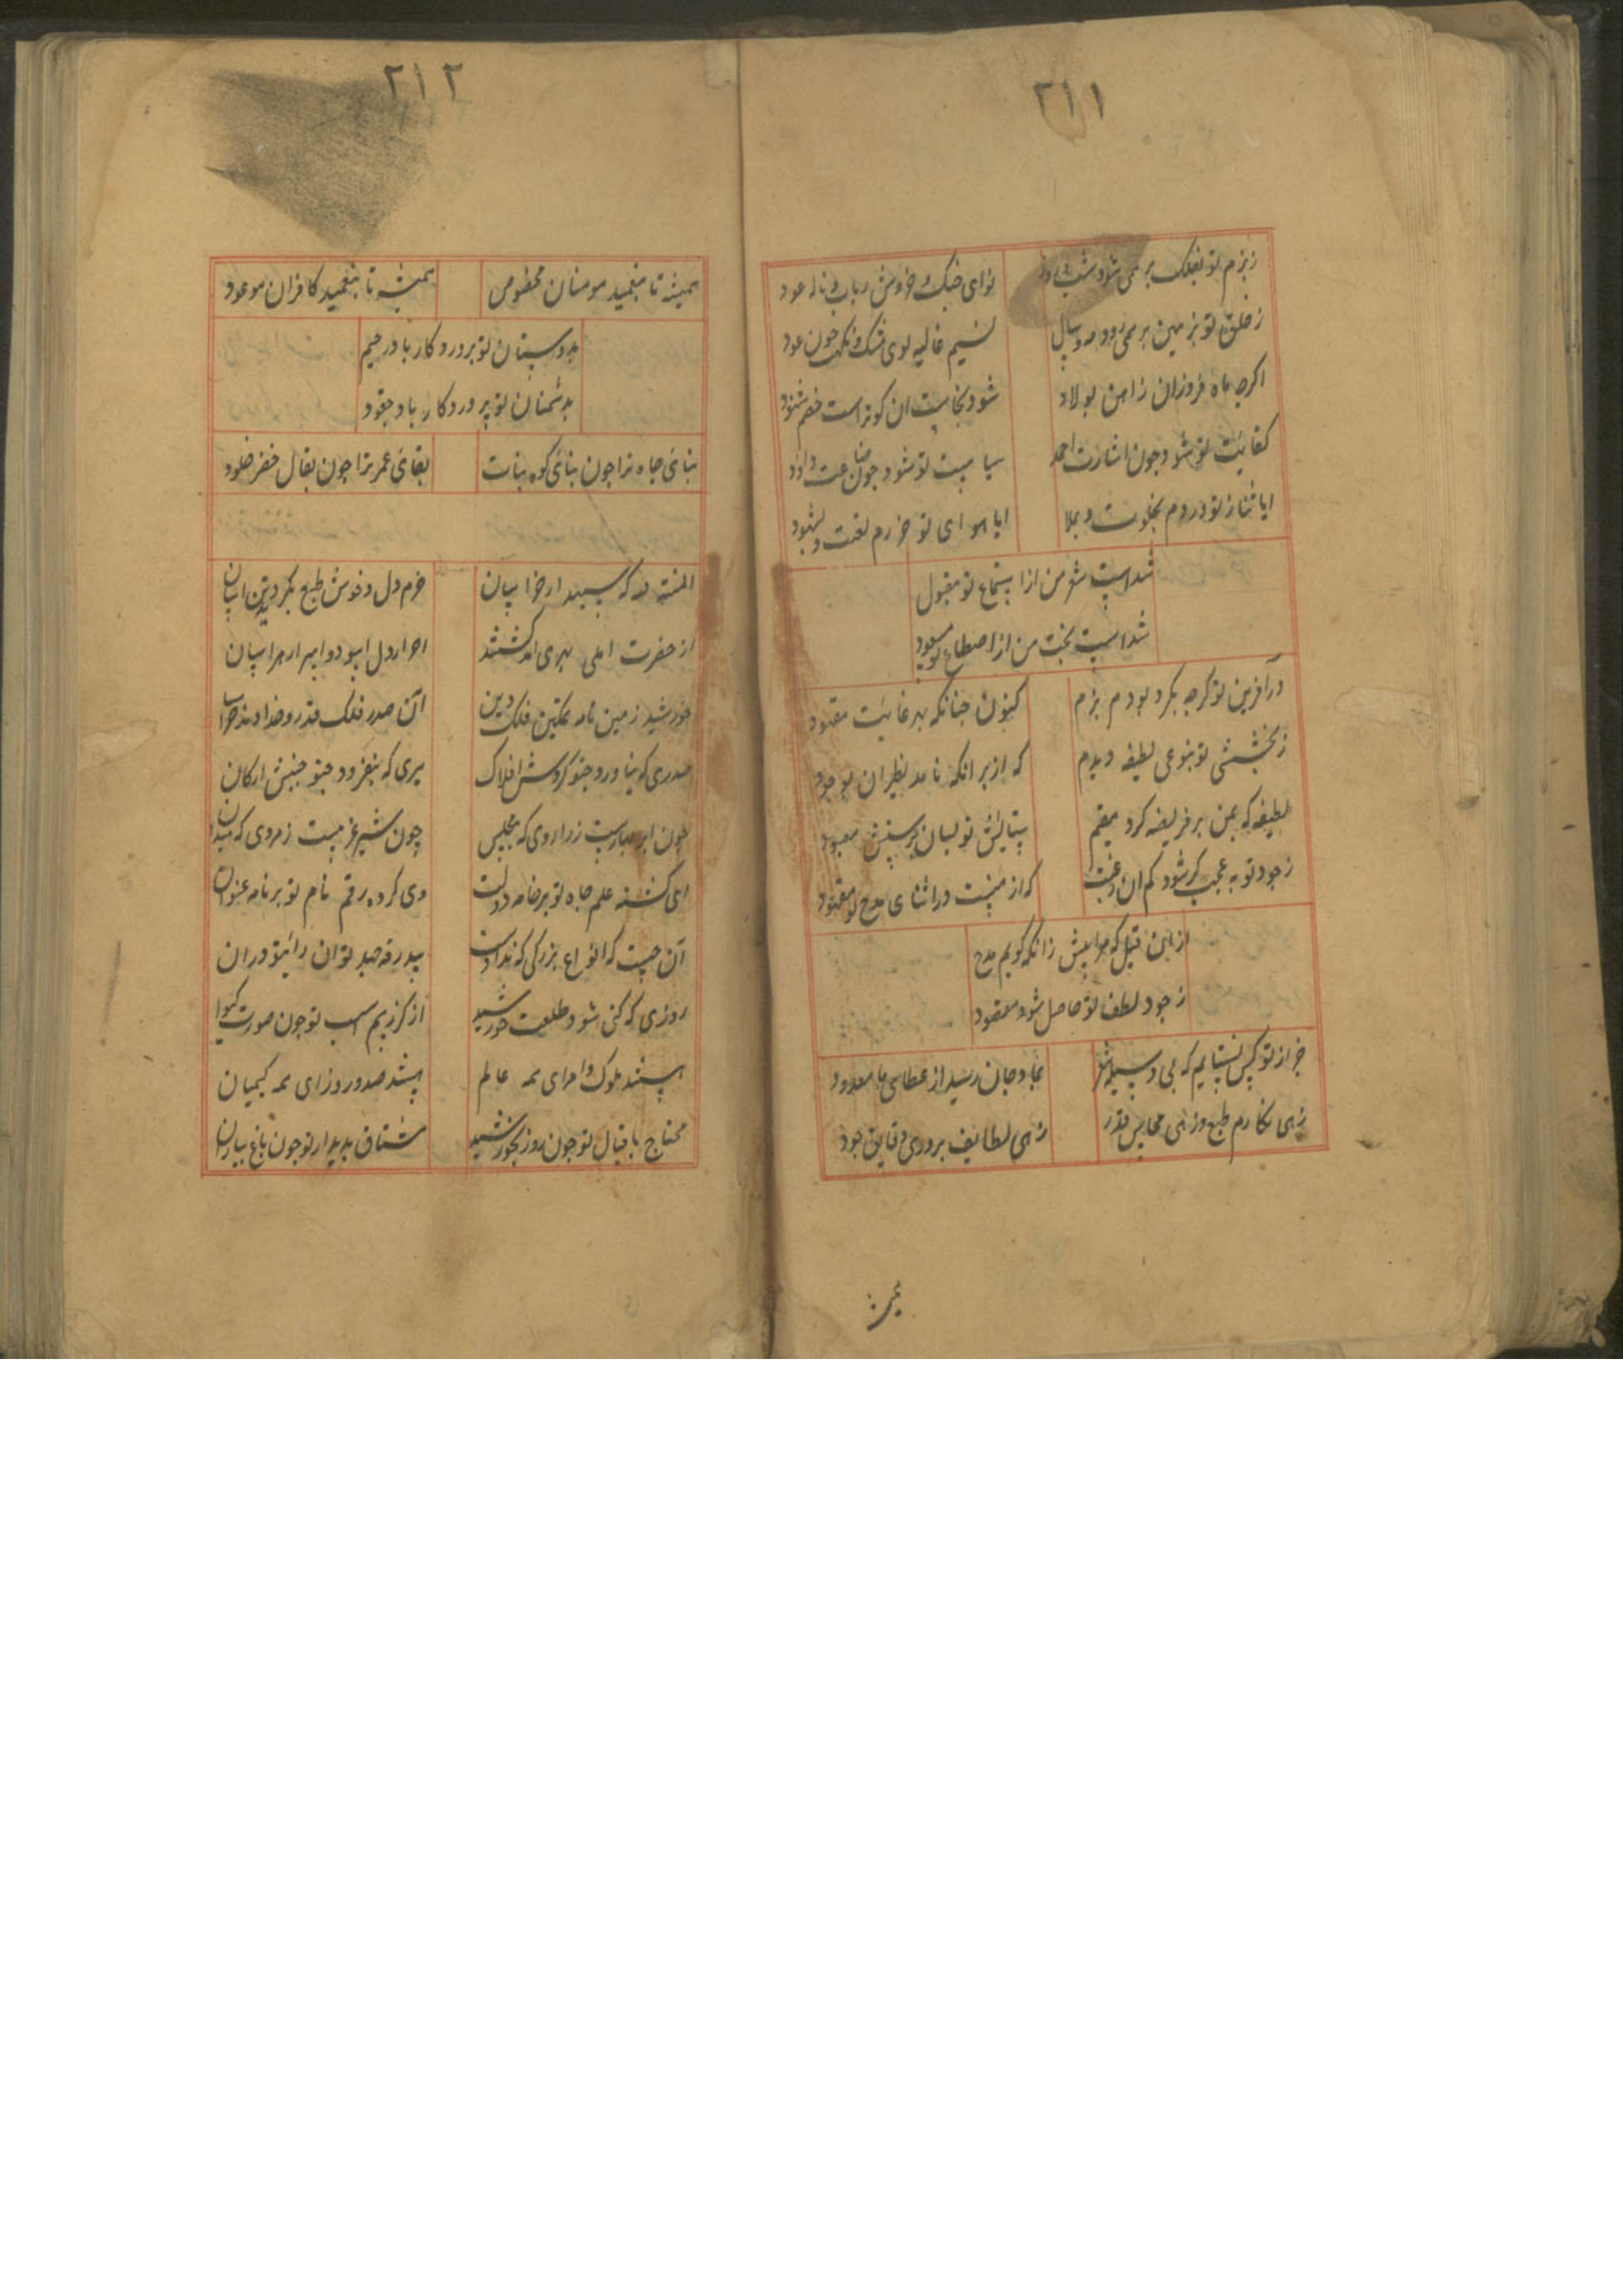 ۲۱۱
زبزم تو بفلک بر می شود شب و روز نوای چنک و خروش رباب و ناله عود
ز خلق تو بزمین بر می رود مه و سال نسیم غالیه بوی مشک و نکهت چون عود
اکرچه ماه فروزان ز اهن بولاد شود بخاصیت ان کو تراست خصم
کفایت تو شود چون اشارت احمد سیاست تو شود چون صناعت داود
ایا ثنای تو وردم بخلوت و بملا ایا هوای تو خرم لغیبت و شهود
شداست شعر من از استماع تو مقبول
شداست بخت من از اصطناع تو مسعود
در آفرین تو کرچه بکرد بودم بزم کنون چنانکه بهر غایت مقصود
ز بخششی تو بنوعی لطیفه دیدم که از بر انکه نامد نظیر ان بوجود
لطیفه که بمن بر فریضه کرد مقیم ستایش تو بسان پرستش معبود
ز جود تو چه عجب کر شود کم ان رغبت که از منست در اثنای مدح تو مقصود
از این قبل که مرا بیش زانکه کویم مدح
ز جود لطف تو حاصل شود مقصود
جز از تو کس نستایم که بی وسیله شعر بما و جان رسید از عطای نا معدود
زهی مکارم طبع و زهی محاسن قدر زهی لطایف بروری و قایق جود
۲۱۲
همیشه تا بنعمید مومنان مخصوص همیشه تا بنعمید کافران موعود
بدوستان تو برورد کار باد رحیم
بدشمنان تو پرورد کار باد حقود
بنای جاه ترا چون بنای کوه ثبات بقای عمر ترا چون بقای خضر خلود
المنته لله که سپهدار خراسان خرم دل و خوش طبع بکردید تن اسان
از حضرت اعلی بهری آمد کشتند احرار دل اسوده و ابرار هراسان
خورشید زمین نامه تمکین فلک دین آن صدر فلک قدر و خداوند خراسان
صدری که نیاورد چنو کردش افلاک میری که بنفزود چنو جنبش ارکان
چون ابر بهارست زرادی که مجلس چون شیر غریبست ز مردی که میدان
ای کشته علم جاه تو بر خامه دولت وی کرده رقم نام تو بر نامه عنوان
آن چیست که انواع بزرکی که نداد ست
روزی که کنی شود طلعت خورشید از کرز بیم اسب تو چون صورت کیوان
هستند ملوک و امرای همه عالم هستند صدور و زرای همه کیهان
محتاج باقبال تو چون روز بخورشید مشتاق بدیدار تو چون باغ بباران